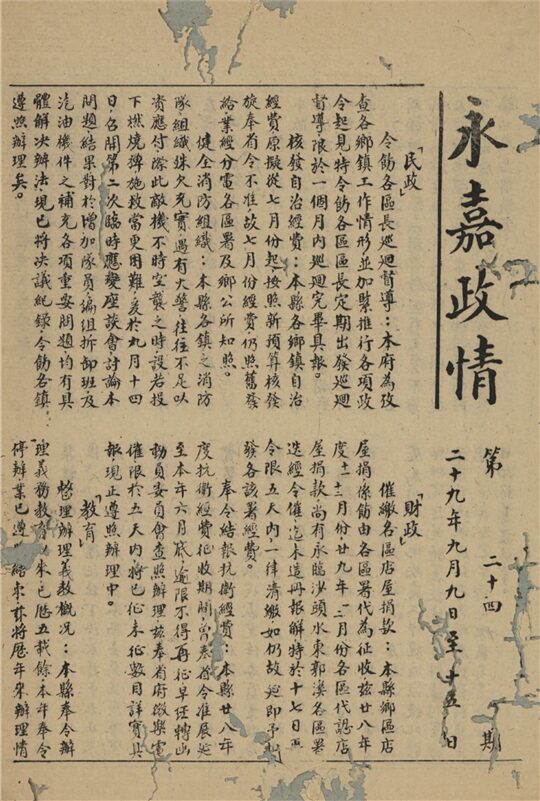 永嘉政情
第二十四期
二十九年九月九日至十五日
「民政」
令飭各區長巡廻督導：本府為攷
查各鄉鎮工作情形並加緊推行各項政
令起見特令飭各區區長定期出發巡廻
督導限於一個月內巡廻完畢具報。
核發自治經費：本縣各鄉鎮自治
經費原擬從七月份起，按照新預算核發
旋奉省令不准故七月份經費仍照舊發
給業經分電各區署及鄉公所知照。
健全消防組織：本縣各鎮之消防
隊組織殊久充實遇有火警往往不足以
資應付際此敵機不時空襲之時設若投
下燃燒彈施救當更困難爰於九月十四
日召開第二次臨時應變座談會討論本
問題結果對於增加隊員編組拆卸班及
汽油機件之補充各項重要問題均有具
體解決辦法現已將決議紀錄令飭各鎮
遵照辦理矣。
「財政」
催繳各區店屋捐款：本縣鄉區店
屋捐係飭由各區署代為征收茲廿八年
度十二月份廿九年一二月份各區代認店
屋捐款尚有永臨沙頭水東郭溪各區署
迭經令催迄未造冊報解特於十七日再
令限五天內一律清繳如仍故延即予
發各該署經費。
奉令結報抗衛經費：本縣廿八年
度抗衛經費征收期間曾奉省令准展延
至本年六月底，逾限不得再征早經轉函
動員委員會查照辦理茲奉省府微與電
催限於五天內將已征未征數目詳實具
報，現正遵照辦理中。
「教育」
整理辦理義教概況：本縣奉令辦
理義務教育以來已歷五載餘本年奉令
停辦業已遵結束茲將歷年來辦理情